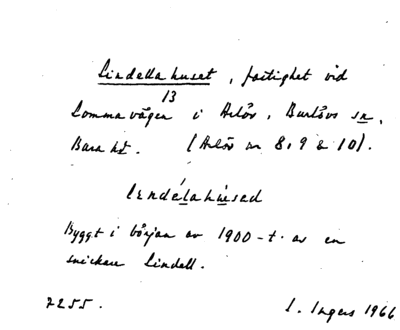 Lindella huset, fastighet vid
13
Lommavägen i Arlöv, Burlövs sn,
Bara hd. (Arlöv nr 8, 9 & 10).
lendélahúsad
Byggt i början av 1900-t. av en
snickare Lindell.
7255. I. Ingers 1966